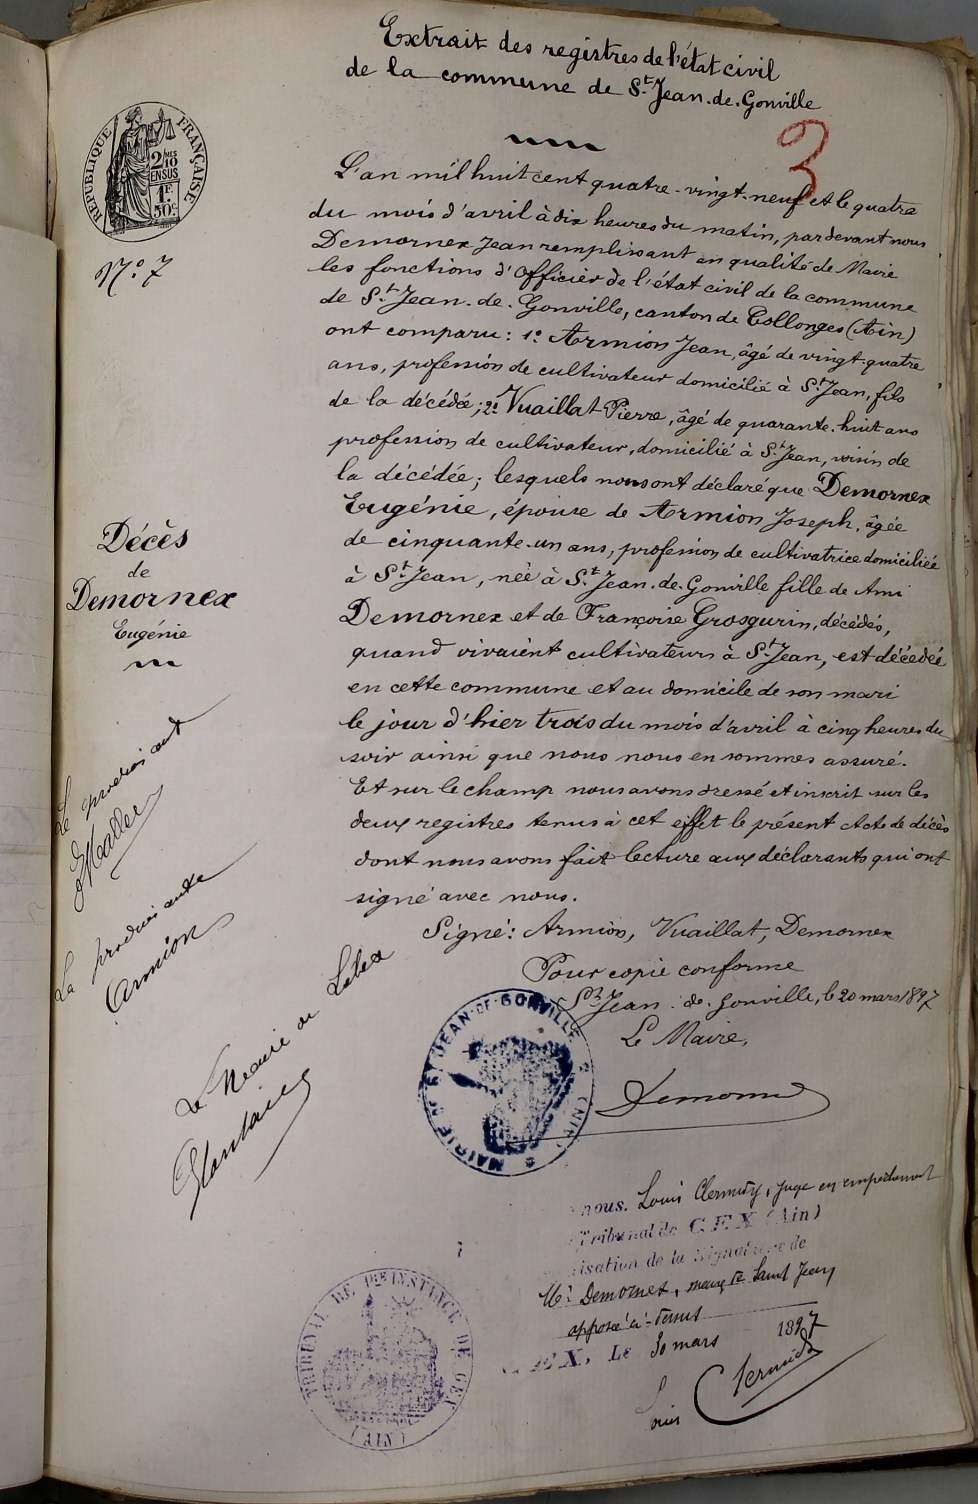 Extrait des registres de l'état civil
de la commune de St. Jean.de.Gonville
3
RÉPUBLIQUE FRANÇAISE
2/10 MES
EN SUS
1F.
50c
N.° 7
L'an mil huit cent quatre-vingt-neuf et le quatre
du mois d'avril à dix heures du matin, pardevant nous
Demornex Jean remplissant en qualité de Maire
les fonctions d'Officier de l'état civil de la commune
de St. Jean.de.Gonville, canton de Collonges (Ain)
ont comparu: 1° Armion Jean, âgé de vingt-quatre
ans, profession de cultivateur domicilié à St. Jean, fils
de la décédée; 2° Vuaillat Pierre, âgé de quarante-huit ans
profession de cultivateur, domicilié à St. Jean, voisin de
la décédée; lesquels nous ont déclaré que Demornex
Eugénie, épouse de Armion Joseph, âgée
de cinquante-un ans, profession de cultivatrice domiciliée
à St. Jean, née à St. Jean.de.Gonville fille de Ami
Demornex et de Françoise Grosgurin, décédés,
quand vivaient cultivateurs à St. Jean, est décédée
en cette commune et au domicile de son mari
le jour d'hier trois du mois d'avril à cinq heures du
soir ainsi que nous nous en sommes assuré.
Et sur le champ nous avons dressé et inscrit sur les
deux registres tenus à cet effet le présent Acte de décès
dont nous avons fait lecture aux déclarants qui ont
signé avec nous.
Signé: Armion, Vuaillat, Demornex
Pour copie conforme
St. Jean.de.Gonville, le 20 mars 1897
Le Maire,
Demornex
MAIRIE DE ST JEAN-DE-GONVILLE (AIN)
Décès
de
Demornex
Eugénie
Le
La
Armion
Le Maire de Lelex
nous. Louis juge en empêchement
Tribunal de GEX (Ain)
isation de la Signature de
Mr. Demornex, maire de Saint Jean
apposée ci-dessus
EX, Le 30 mars 1897
Louis
TRIBUNAL DE 1ERE INSTANCE DE GEX (AIN)